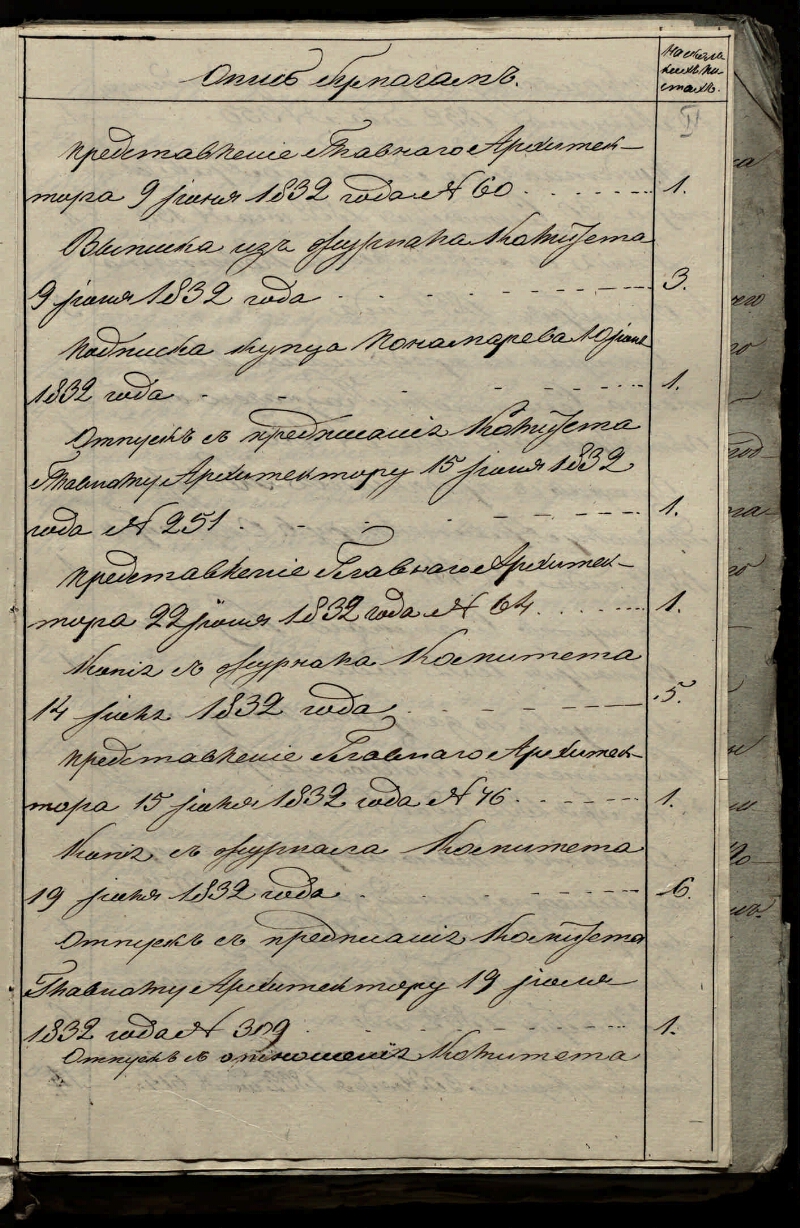 Опись бумагамъ.
На сколь-
кихъ ли-
стахъ.
II
Представленіе Главнаго Архитек-
тора 9 іюня 1832 года № 60 1.
Выписка изъ журнала Комитета
9 іюня 1832 года 3.
Подписка купца Пономарева 10 іюня
1832 года 1.
Отпускъ съ предписанія Комитета
Главному Архитектору 15 іюня 1832
года № 251 1.
Представленіе Главнаго Архитек-
тора 22 іюня 1832 года № 64 1.
Копія съ журнала Комитета
14 1832 года 5.
Представленіе Главнаго Архитек-
тора 15 1832 года № 76 1.
Копія съ журнала Комитета
19 1832 года 6.
Отпускъ съ предписанія Комитета
Главному Архитектору 19 іюля
1832 года № 309 1.
Отпускъ съ отношенія Комитета